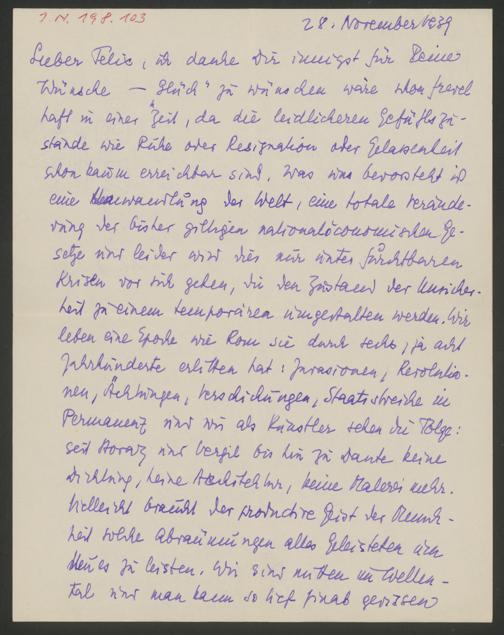 I.N. 198.103
28. November 1939
Lieber Felix, ich danke Dir innigst für Deine
Wünsche — „Glück" zu wünschen wäre schon frevel
haft in einer Zeit, da die leidlicheren Gefühlszu-
stände wie Ruhe oder Resignation oder Gelassenheit
schon kaum erreichbar sind. Was uns bevorsteht ist
eine Umwandlung der Welt, eine totale Verände-
rung der bisher giltigen nationalöconomischen Ge-
setze und leider wird dies nur unter furchtbaren
Krisen vor sich gehen, die den Zustand der Unsicher-
heit zu einem temporären umgestalten werden. Wir
leben eine Epoche wie Rom sie durch sechs, ja acht
Jahrhunderte erlitten hat: Invasionen, Revolutio-
nen, Ächtungen, Verschickungen, Staatsstreiche in
Permanenz und wir als Künstler sehen die Folge:
seit Horaz und Vergil bis hin zu Dante keine
Dichtung, keine Architektur, keine Malerei mehr.
Vielleicht braucht der productive Geist der Mensch-
heit solche Abräumungen alles Geleisteten um
Neues zu leisten. Wir sind mitten im Wellen-
tal und man kann so tief hinab gerissen